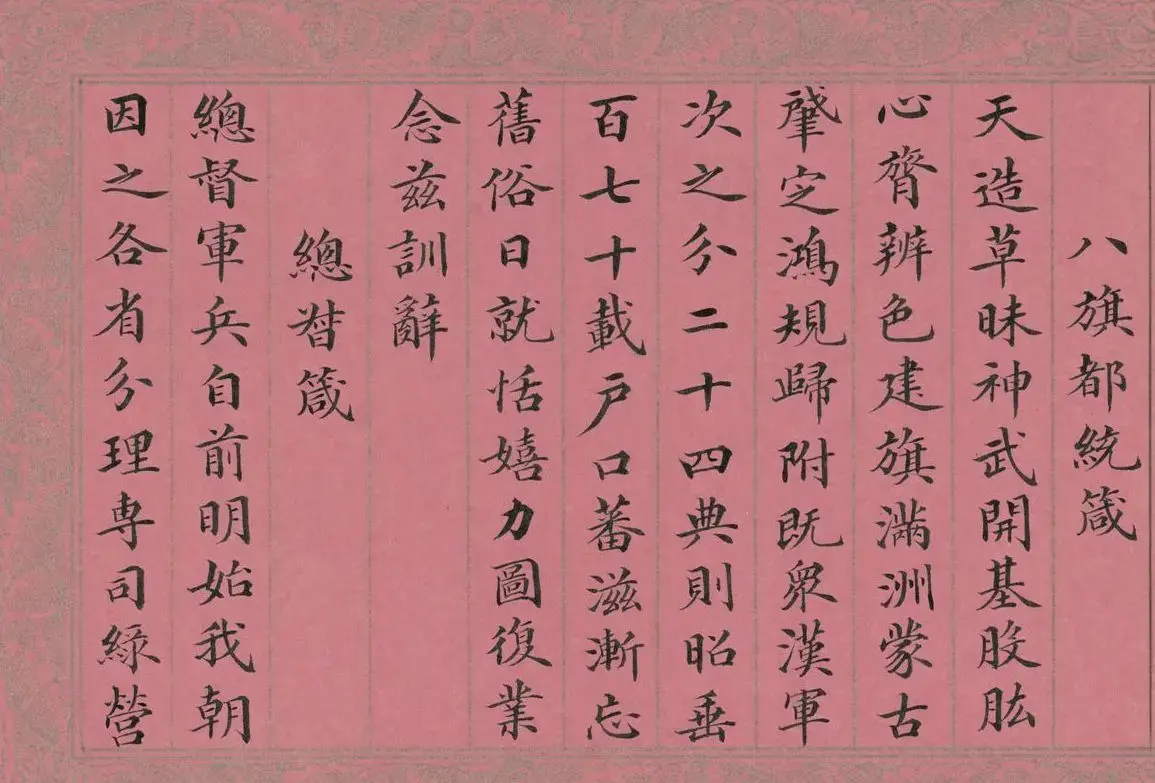 八旗都統箴
天造草昧神武開基股肱
心膂辨色建旗滿洲蒙古
肇定鴻規歸附既眾漢軍
次之分二十四典則昭垂
百七十載戶口蕃滋漸忘
舊俗日就恬嬉力圖復業
念茲訓辭
總督箴
總督軍兵自前明始我朝
因之各省分理專司綠營